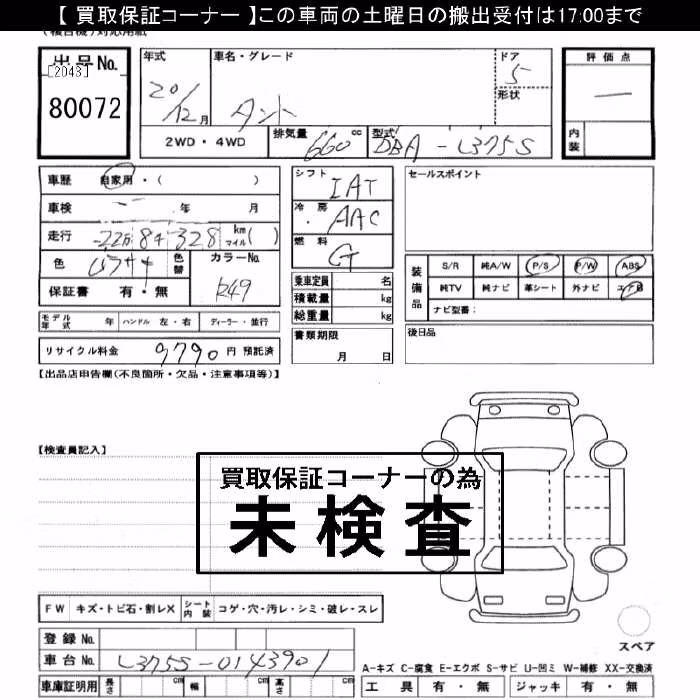 【 買取保証コーナー 】この車両の土曜日の搬出受付は17:00まで
出品No.
[2043]
80072
年式 20/12月
車名・グレード タント
ドア 5
形状
評価点 ー
内装
2WD・4WD
排気量 660 cc
型式 DBA - L375S
車歴 自家用・( )
車検 ー 年 月
走行
328 km マイル( )
色
色替
カラーNo. R49
保証書 有・無
シフト IAT
冷房 AAC
燃料 G
乗車定員 名
積載量 kg
総重量 kg
セールスポイント
装備品 S/R 純A/W P/S P/W ABS
純TV 純ナビ 革シート 外ナビ エアB
ナビ型番:
モデル年式 年 ハンドル 左・右 ディーラー・並行
リサイクル料金 9790 円 預託済
書類期限 月 日
後日品
【出品店申告欄(不良箇所・欠品・注意事項等)】
【検査員記入】
買取保証コーナーの為
未検査
FW キズ・トビ石・割レX シート内装 コゲ・穴・汚レ・シミ・破レ・スレ
登録 No.
車台 No. L375S-0143901
スペア
A-キズ C-腐食 E-エクボ S-サビ U-凹ミ W-補修 XX-交換済
車庫証明用 長さ cm 幅 cm 高さ cm
工具 有・無 ジャッキ 有・無